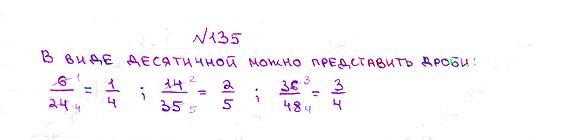 №135
В виде десятичной можно представить дроби:
6¹/24₄ = 1/4 ; 14²/35₅ = 2/5 ; 36³/48₄ = 3/4